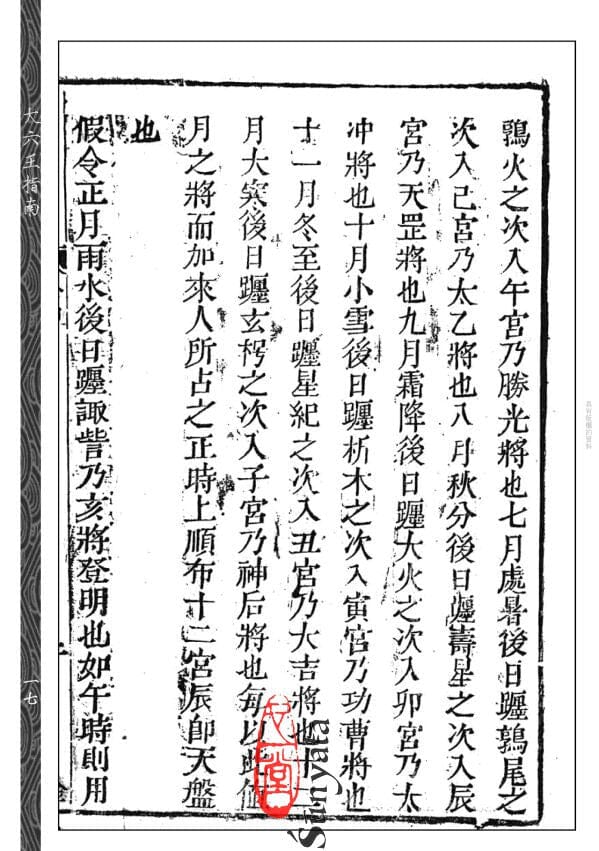 鶉火之次入午宮乃勝光將也七月處暑後日躔鶉尾之
次入巳宮乃太乙將也八月秋分後日躔壽星之次入辰
宮乃天罡將也九月霜降後日躔大火之次入卯宮乃太
冲將也十月小雪後日躔析木之次入寅宮乃功曹將也
十一月冬至後日躔星紀之次入丑宮乃大吉將也十二
月大寒後日躔玄枵之次入子宮乃神后將也每以此值
月之將而加來人所占之正時上順布十二宮辰卽天盤
也
假令正月雨水後日躔諏訾乃亥將登明也如午時則用
大六壬指南
一七
Śūnyatā